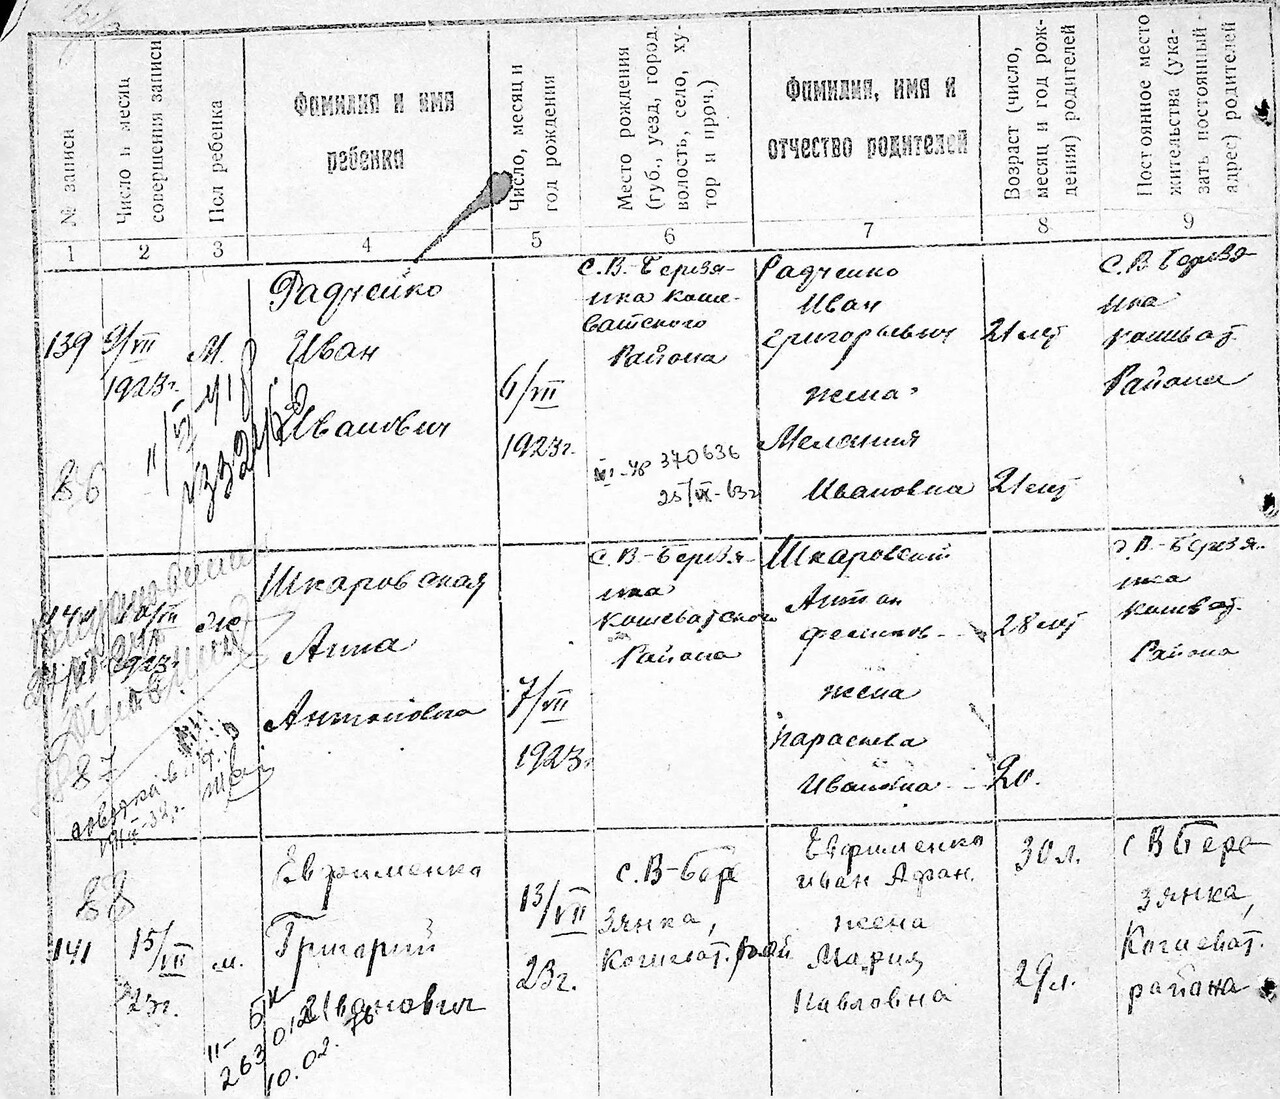 № записи
Число и месяц
совершения записи
Пол ребенка
Фамилия и имя
ребенка
Число, месяц и
год рождения
Место рождения
(губ., уезд, город,
волость, село, ху-
тор и проч.)
Фамилия, имя и
отчество родителей
Возраст (число,
месяц и год рож-
дения) родителей
Постоянное место
жительства (ука-
зать постоянный
адрес) родителей
1 2 3 4 5 6 7 8 9
139
9/VII
1923г.
М.
86
Радченко
Иван
Иванович
6/VII
1923г.
с.В.-Березя-
нка Коше-
ватского
Района
370636
25/IX-63г
Радченко
Иван
Григорьевич
жена
Мелания
Ивановна
21 лет
21 лет
С.В Березя-
нка
кошеват.
Района
140
10/VII
1923г.
ж
87
Шкаровская
Анна
Антоновна
7/VII
1923г.
с.В-Березя-
нка
Кошеватского
Района
Шкаровский
Антон
жена
Параскева
Ивановна
28 лет
20.
с.В-Березя-
нка
кошеват.
Района
88
141
15/VII
23г.
м.
Евфименко
Григорий
Иванович
II-БК
10.02.76
13/VII
23г.
с.В-Бере
зянка,
Кошеват. рай
Евфименко
Иван Афан.
жена
Мария
Павловна
30л.
29л.
с В Бере
зянка,
Кошеват.
района